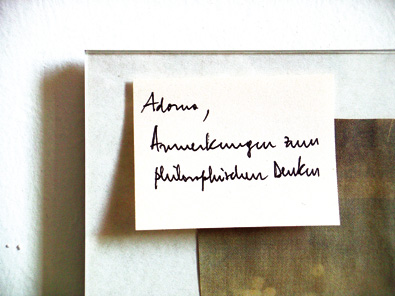 Adorno,
Anmerkungen zum
philosophischen Denken